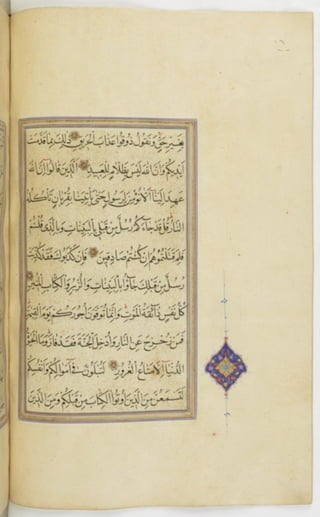 بغير حق ونقول ذوقوا عذاب الحريق ذلك بما قدمت
ايديكم وان الله ليس بظلام للعبيد الذين قالوا ان الله
عهد الينا الا نؤمن لرسول حتى ياتينا بقربان تاكله
النار قل قد جاءكم رسل من قبلي بالبينات وبالذي قلتم
فلم قتلتموهم ان كنتم صادقين فان كذبوك فقد كذب
رسل من قبلك جاؤا بالبينات والزبر والكتاب المنير
كل نفس ذائقة الموت وانما توفون اجوركم يوم القيمة
فمن زحزح عن النار وادخل الجنة فقد فاز وما الحيوة
الدنيا الا متاع الغرور لتبلون في اموالكم وانفسكم
ولتسمعن من الذين اوتوا الكتاب من قبلكم ومن الذين